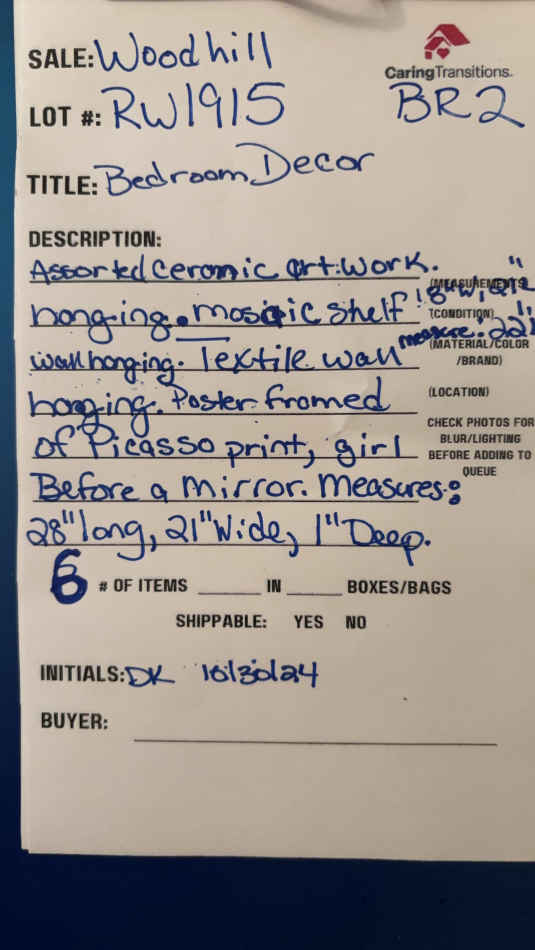 SALE: Woodhill
CaringTransitions.
LOT #: RW1915
BR2
TITLE: Bedroom Decor
DESCRIPTION:
Assorted ceramic art work.
(MEASUREMENTS)
hanging. mosaic shelf 8"W,
(CONDITION)
wall hanging. Textile wall measure:
(MATERIAL/COLOR
/BRAND)
hanging. Poster framed
(LOCATION)
of Picasso print, girl
CHECK PHOTOS FOR
BLUR/LIGHTING
BEFORE ADDING TO
QUEUE
Before a mirror. Measures:
28" long, 21" Wide, 1" Deep.
6 # OF ITEMS ______ IN ______ BOXES/BAGS
SHIPPABLE: YES NO
INITIALS: DK 10/30/24
BUYER: